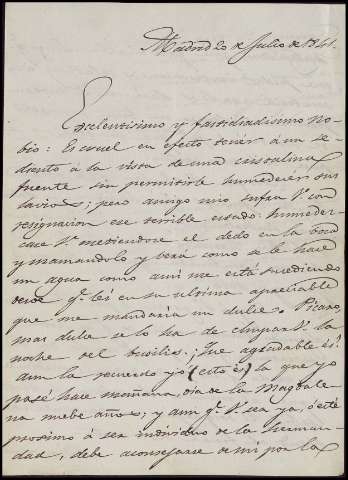 Madrid 20 de Julio de 1841.
Excelentisimo y fastidiadisimo No-
bio: Es cruel en efecto tener á un se-
diento á la vista de una cristalina
fuente sin permitirle humedecer sus
lavios; pero amigo mio sufra V. con
resignacion ese terrible estado: humedez-
case V. metiendose el dedo en la boca
y mamandolo y verá como se le hace
un agua como a mi me está sucediendo
desde q.e leí en su ultima apreciable
que me mandaria un dulce. Picaro,
mas dulce se lo ha de chupar V. la
noche del busilis. ¡Que agradable es!
aun la recuerdo yo (esto es) la que yo
pasé hace mañana, dia de la Magdale-
na nuebe años; y aun q.e V. sea ya, ó esté
procsimo á ser individuo de la herman-
dad, debe aconsejarse de mi por la